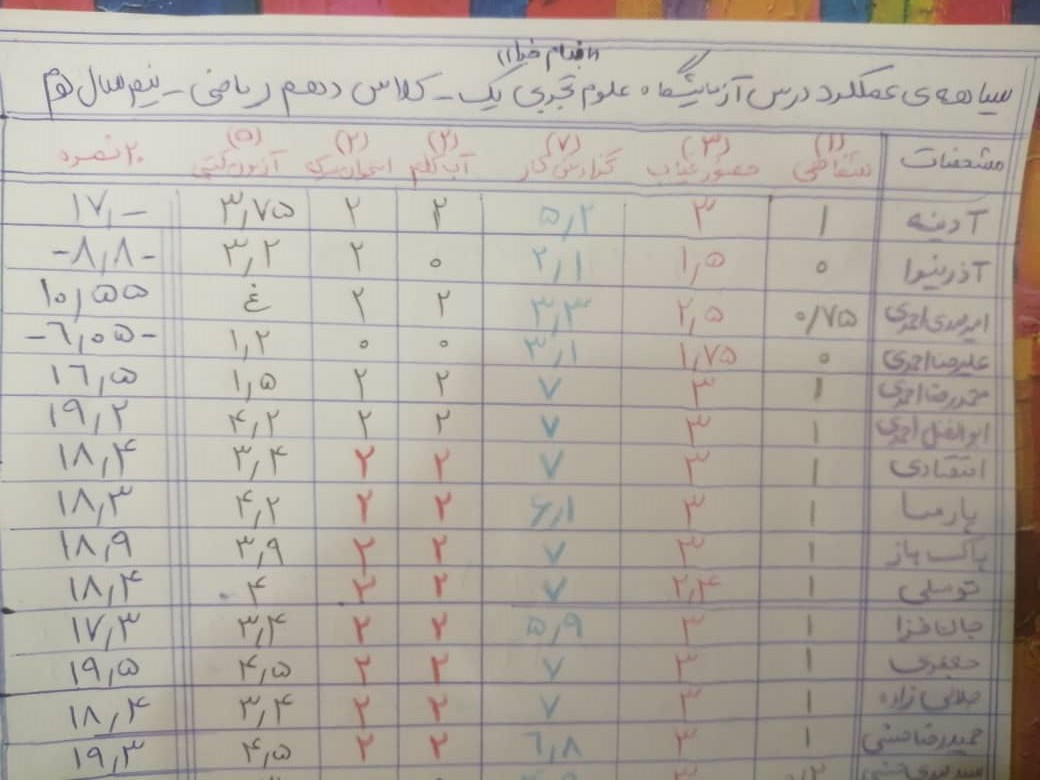 "بنام خدا"
سیاهه‌ی عملکرد درس آزمایشگاه علوم تجربی یک - کلاس دهم ریاضی - نیم سال دوم
مشخصات (۱) شفاهی (۳) حضور غیاب (۷) گزارش کار (۲) آب کلم (۲) استخوان سرکه (۵) آزمون کتبی ۲۰ نمره
آدینه ۱ ۳ ۵٫۲ ۲ ۲ ۳٫۷۵ ۱۷٫-
آذرنیوا ۰ ۱٫۵ ۲٫۱ ۰ ۲ ۳٫۲ -۸٫۸-
امیرمهدی احمدی ۰/۷۵ ۲٫۵ ۳٫۳ ۲ ۲ غ ۱۰٫۵۵
علیرضا احمدی ۰ ۱٫۷۵ ۳٫۱ ۰ ۰ ۱٫۲ -۶٫۰۵-
محمدرضا احمدی ۱ ۳ ۷ ۲ ۲ ۱٫۵ ۱۶٫۵
ابوالفضل احمدی ۱ ۳ ۷ ۲ ۲ ۴٫۲ ۱۹٫۲
اعتقادی ۱ ۳ ۷ ۲ ۲ ۳٫۴ ۱۸٫۴
پارسا ۱ ۳ ۶٫۱ ۲ ۲ ۴٫۲ ۱۸٫۳
پاک باز ۱ ۳ ۷ ۲ ۲ ۳٫۹ ۱۸٫۹
توسلی ۱ ۲٫۴ ۷ ۲ ۲ ۴ ۱۸٫۴
جان فزا ۱ ۳ ۵٫۹ ۲ ۲ ۳٫۴ ۱۷٫۳
جعفری ۱ ۳ ۷ ۲ ۲ ۴٫۵ ۱۹٫۵
جلالی زاده ۱ ۳ ۷ ۲ ۲ ۳٫۴ ۱۸٫۴
حمیدرضا حسنی ۱ ۳ ۶٫۸ ۲ ۲ ۴٫۵ ۱۹٫۳